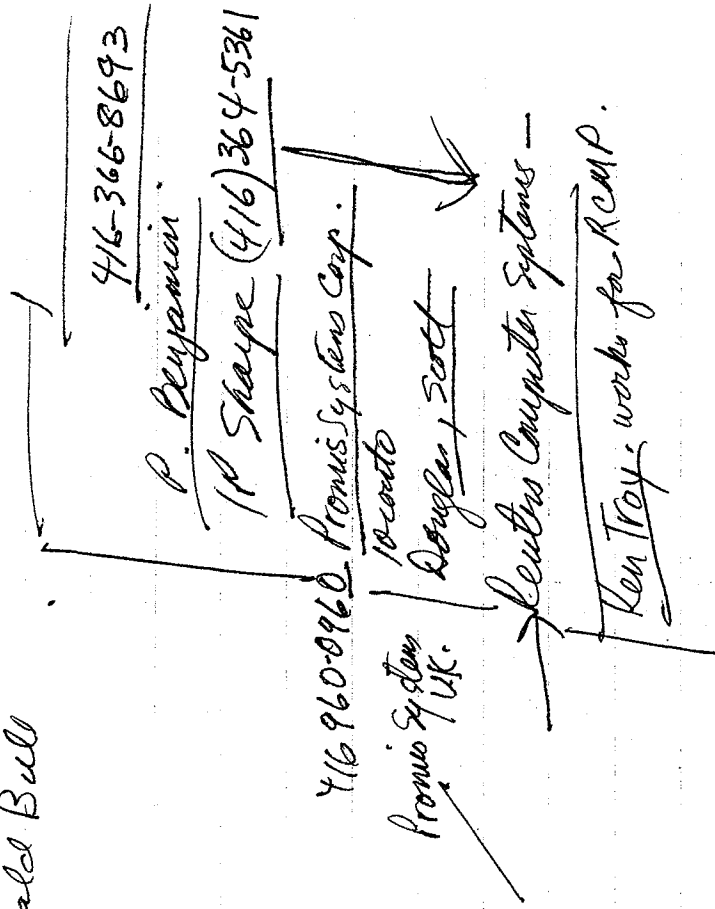 ald Bull
416-366-8693
P. Benjamin
IP Sharpe (416) 364-5361
416 960-0960 Promis Systems Corp.
Toronto
Promis Systems UK.
Douglas, Scott
Reuters Computer Systems —
Ken Troy. works for RCMP.